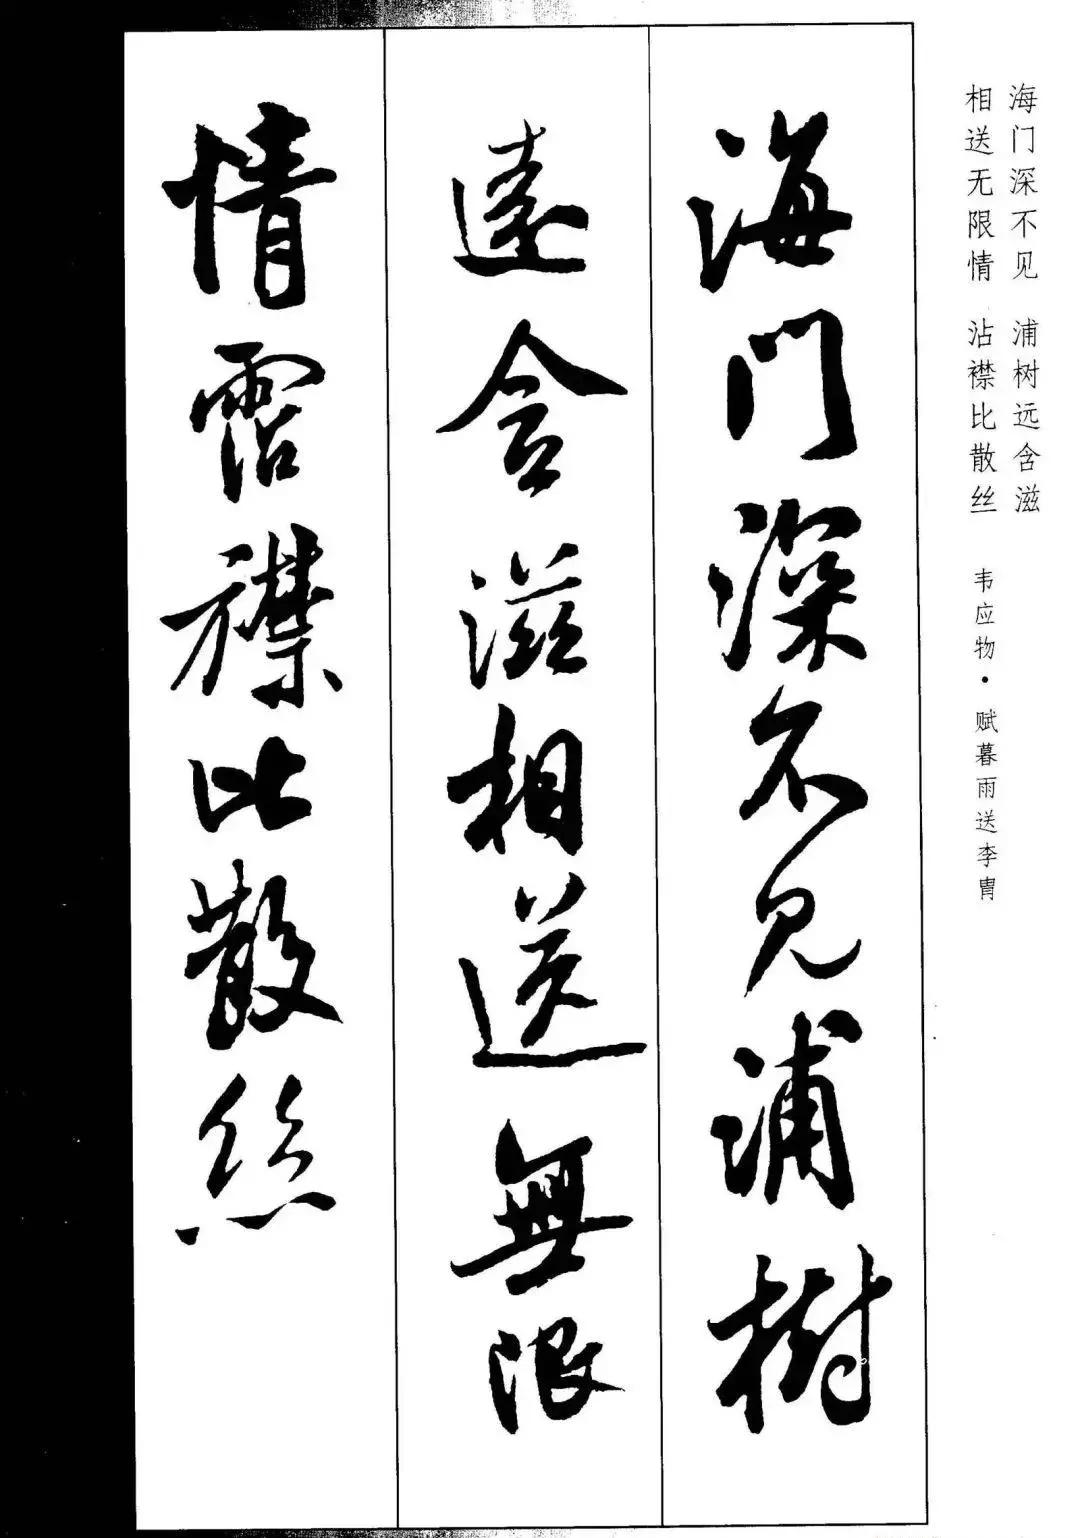 海门深不见 浦树远含滋
相送无限情 沾襟比散丝
韦应物·赋暮雨送李胄
海門深不見浦樹
遠含滋相送無限
情霑襟比散絲